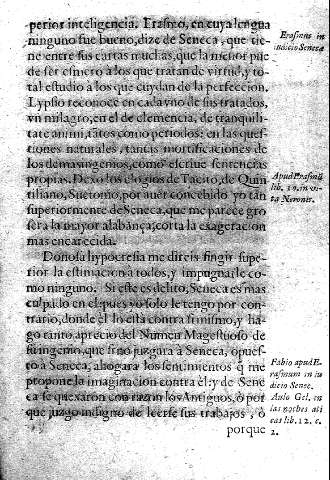 perior inteligencia. Erasmo, en cuya lengua
ninguno fue bueno, dize de Seneca, que tie-
ne entre sus cartas muchas, que la menor pue-
de ser esmero a los que tratan de virtud, y to-
tal estudio a los que cuydan de la perfeccion.
Lypsio reconoce en cada vno de sus tratados,
vn milagro, en el de clemencia, de tranquili-
tate animi, tãtos como periodos: en las ques-
tiones naturales, tantas mortificaciones de
los demas ingenios, como escriue sentencias
propias. Dexo los elogios de Tacito, de Quin
tiliano, Suetonio, por auer concebido yo tan
superiormente de Seneca, que me parece gro
sera la mayor alabãça, corta la exageracion
mas encarecida.
Donosa hypocresia me direis fingir supe-
rior la estimacion a todos, y impugnarle co-
mo ninguno. Si este es delito, Seneca es mas
culpado en el, pues yo solo le tengo por con-
trario, donde èl lo està contra si mismo, y ha-
go tanto aprecio del Numen Magestuoso de
su ingenio, que si no juzgara a Seneca, opues-
to a Seneca, ahogara los sentimientos q̃ me
propone la imaginacion contra èl: y de Sene
ca se quexaron con razon los Antiguos, ò por
que juzgò indigno de leerse sus trabajos, ò
porque
Erasmus in
iudicio Senecæ
Apud Erasmũ
lib. 10. in vi-
ta Neronis.
Fabio apud E-
rasmum in iu
dicio Senec.
Aulo Gel. en
las noches ati
cas lib. 12. c.
2.